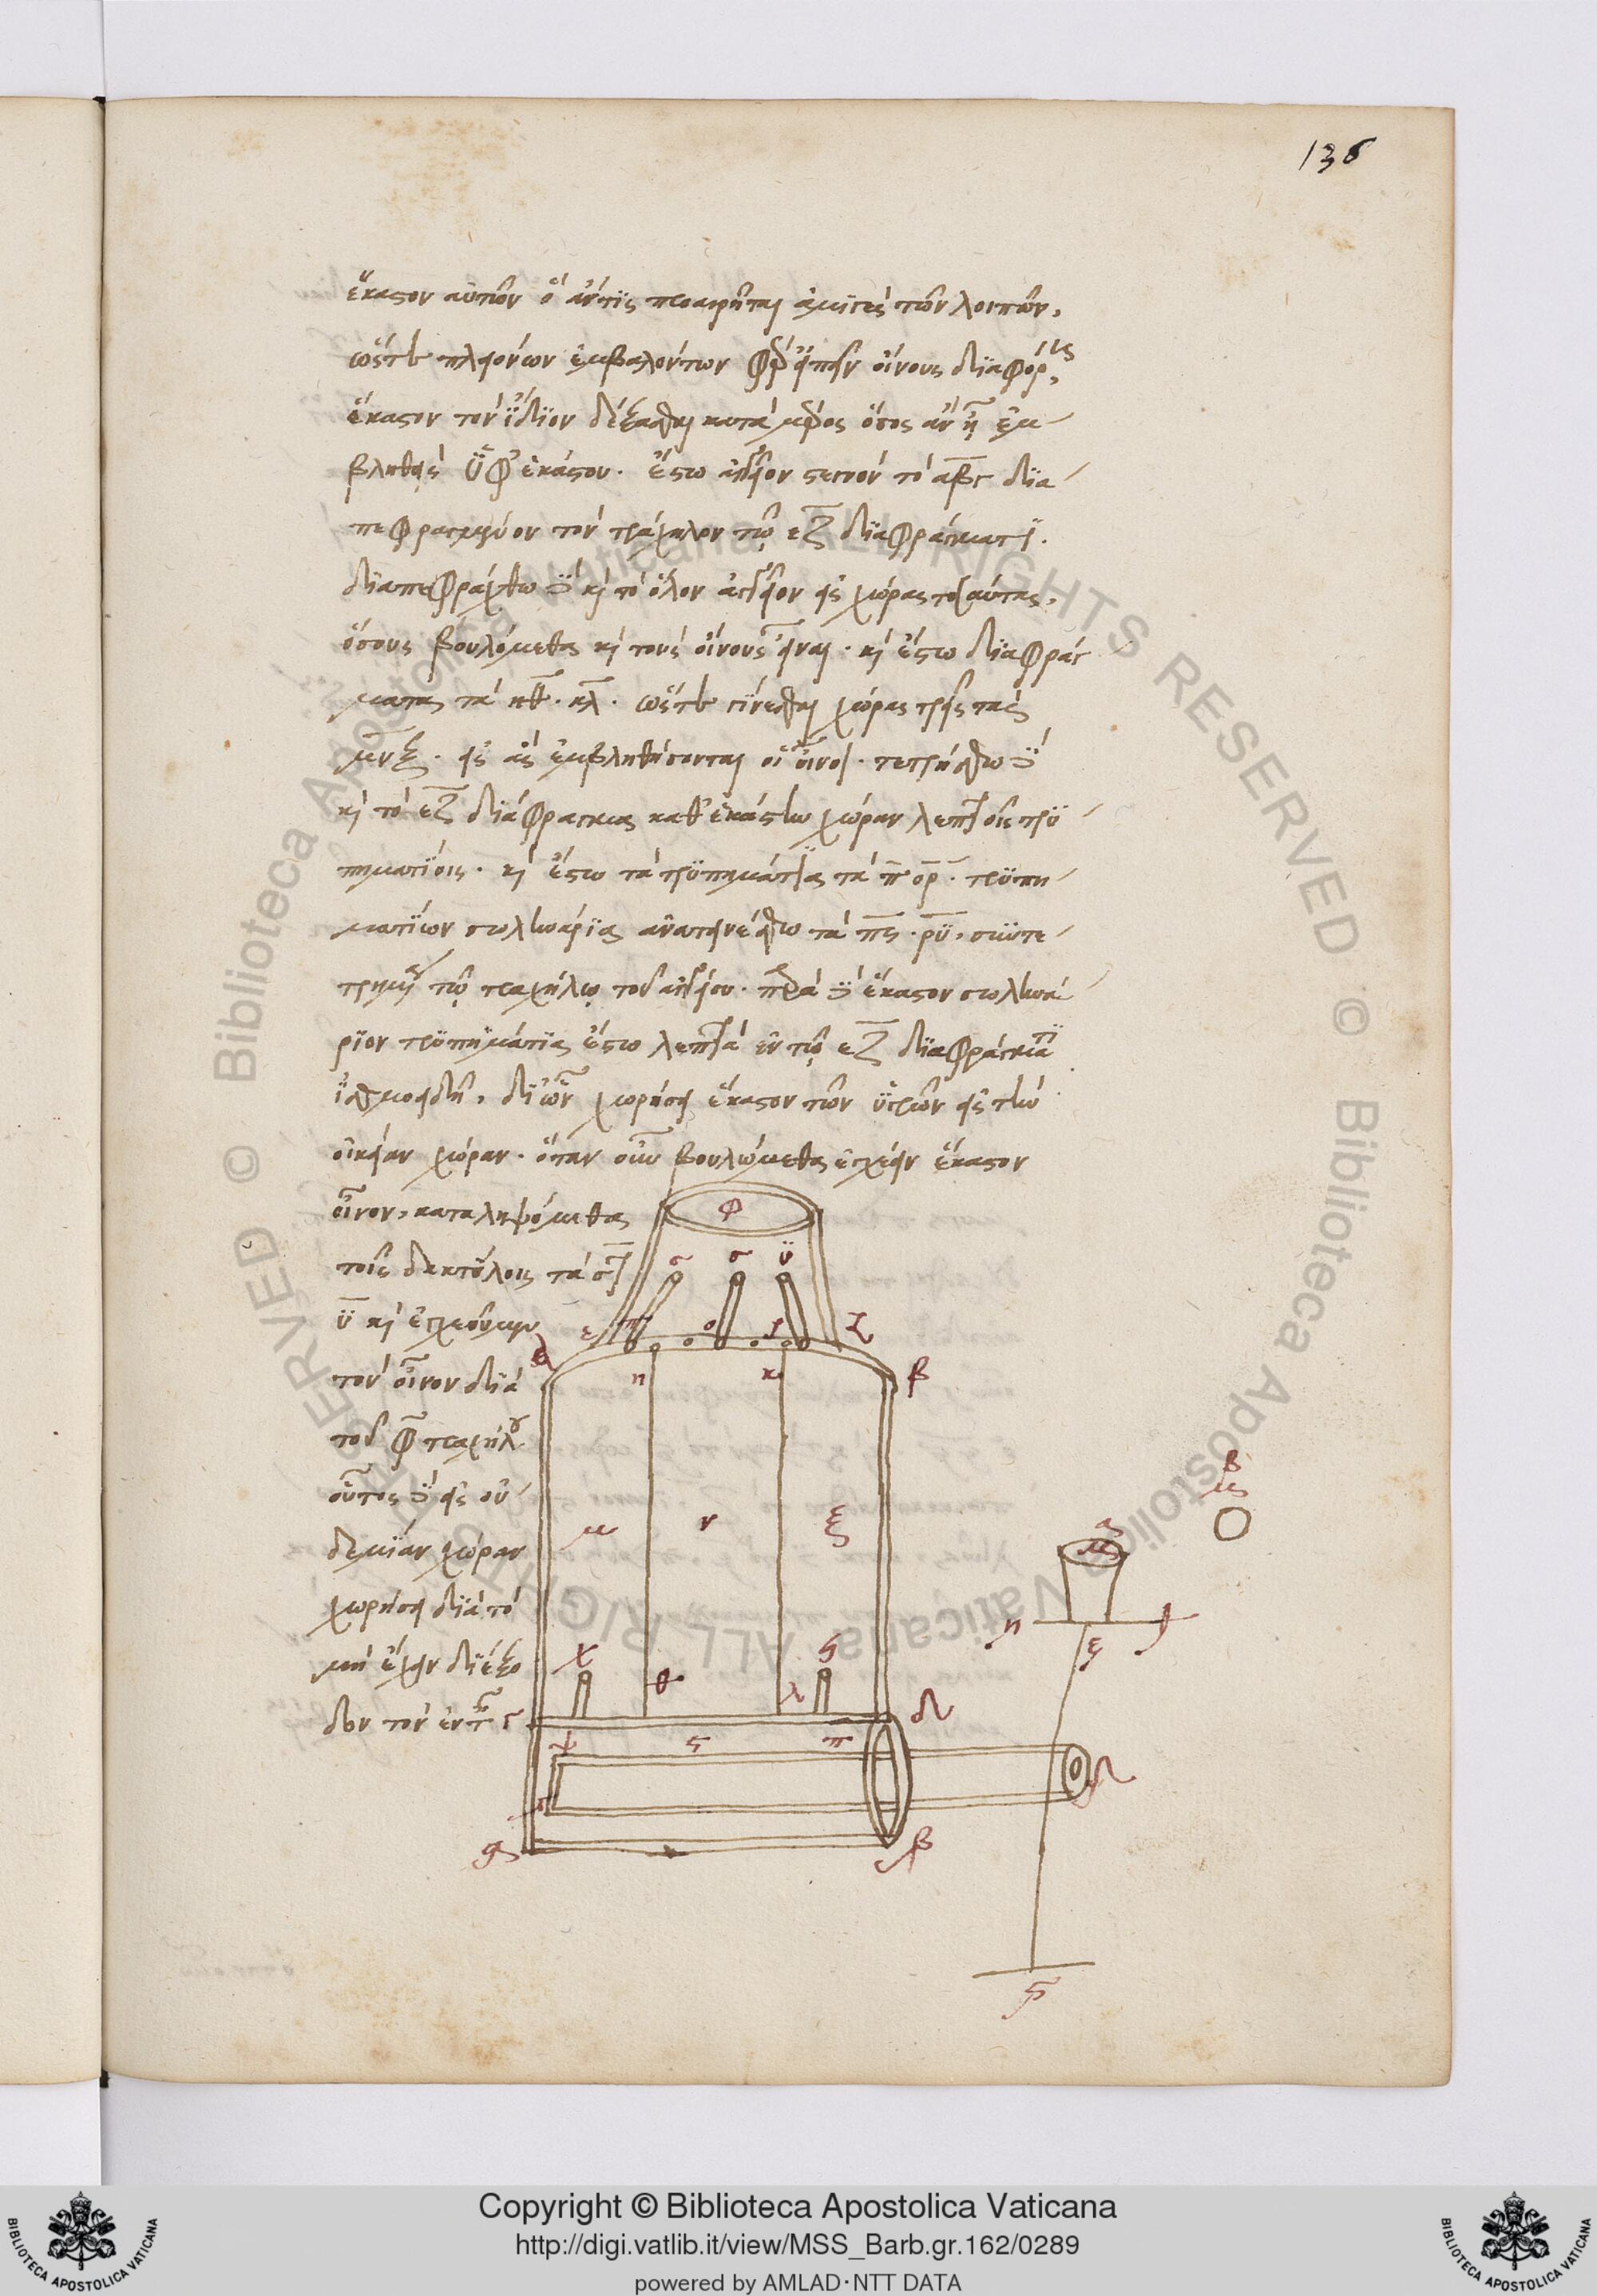 136
ἕκαστον αὐτῶν ὃ ἄν τις προαιρῆται ἀμιγὲς τῶν λοιπῶν,
ὥστε πλειόνων ἐμβαλόντων οἴνους διαφόρους
ἕκαστον τὸν ἴδιον δέξασθαι κατὰ μέρος ὅσος ἂν ᾖ ἐμ-
βληθεὶς ὑφ' ἑκάστου. ἔστω ἀγγεῖον στεγνὸν τὸ αβγδ δια-
πεφραγμένον τὸν τράχηλον τῷ εζ διαφράγματι.
διαπεφράχθω δὲ καὶ τὸ ὅλον ἀγγεῖον εἰς χώρας τοσαύτας,
ὅσους βουλόμεθα καὶ τοὺς οἴνους εἶναι. καὶ ἔστω διαφράγ
ματα τὰ ηθ. κλ. ὥστε γίνεσθαι χώρας τρεῖς τὰς
μνξ. εἰς ἃς ἐμβληθήσονται οἱ οἶνοι. τετρήσθω δὲ
καὶ τὸ εζ διάφραγμα καθ' ἑκάστην χώραν λεπτοῖς τρυ-
πηματίοις. καὶ ἔστω τὰ τρυπημάτια τὰ π ορ. τρυπη-
ματίων σωληνάρια ἀνατεινέσθω τὰ πς. ρυ, συντε-
τρημένα τῷ τραχήλῳ τοῦ ἀγγείου. περὶ δὲ ἕκαστον σωληνά-
ριον τρυπημάτια ἔστω λεπτὰ ἐν τῷ εζ διαφράγματι
ἰσθμοειδῆ, δι' ὧν χωρήσει ἕκαστον τῶν ὑγρῶν εἰς τὴν
οἰκείαν χώραν. ὅταν οὖν βουλώμεθα ἐγχέειν ἕκαστον
οἶνον, καταληψόμεθα
τοῖς δακτύλοις τὰ στ
υ καὶ ἐγχεοῦμεν
τὸν οἶνον διὰ
τοῦ φ τραχήλου
οὗτος δὲ εἰς οὐ-
δεμίαν χώραν
χωρήσει διὰ τὸ
μὴ ἔχειν διέξο
δον τὸν ἐν
φ
σ σ ϋ
ε π ο ρ ζ
α η κ β
μ ν ξ
χ θ λ ς
γ δ
ψ ς π
β
μ
α
μ
η ξ
δ
β
Copyright © Biblioteca Apostolica Vaticana
http://digi.vatlib.it/view/MSS_Barb.gr.162/0289
powered by AMLAD·NTT DATA
BIBLIOTECA APOSTOLICA VATICANA
BIBLIOTECA APOSTOLICA VATICANA
© Biblioteca Apostolica Vaticana ALL RIGHTS RESERVED © Biblioteca Apostolica Vaticana ALL RIGHTS RESERVED